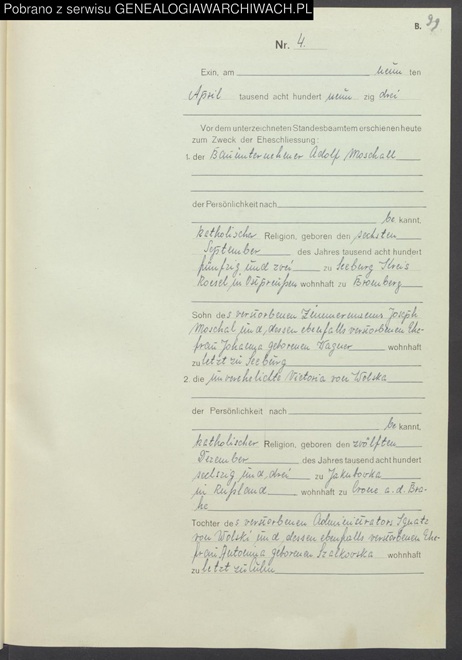 Pobrano z serwisu GENEALOGIAWARCHIWACH.PL
B. 99
Nr. 4.
Exin, am neun ten
April tausend acht hundert neun zig drei
Vor dem unterzeichneten Standesbeamten erschienen heute
zum Zweck der Eheschliessung:
1. der Bauunternehmer Adolf Moschall
der Persönlichkeit nach
be kannt,
katholischer Religion, geboren den sechsten
September des Jahres tausend acht hundert
fünfzig und zwei zu Seeburg Kreis
Roesel in Ostpreußen wohnhaft zu Bromberg
Sohn des verstorbenen Zimmermanns Joseph
Moschal und dessen ebenfalls verstorbenen Ehe-
frau Johanna geborenen Wagner wohnhaft
zuletzt zu Seeburg
2. die unverehelichte Victoria von Wolska
der Persönlichkeit nach
be kannt,
katholischer Religion, geboren den zwölften
Dezember des Jahres tausend acht hundert
sechzig und drei zu Jakubowka
in Rußland wohnhaft zu Crone a. d. Bra-
he
Tochter des verstorbenen Administrators Ignatz
von Wolski und dessen ebenfalls verstorbenen Ehe-
frau Antonya geborenen Szalkowska wohnhaft
zuletzt zu Culm